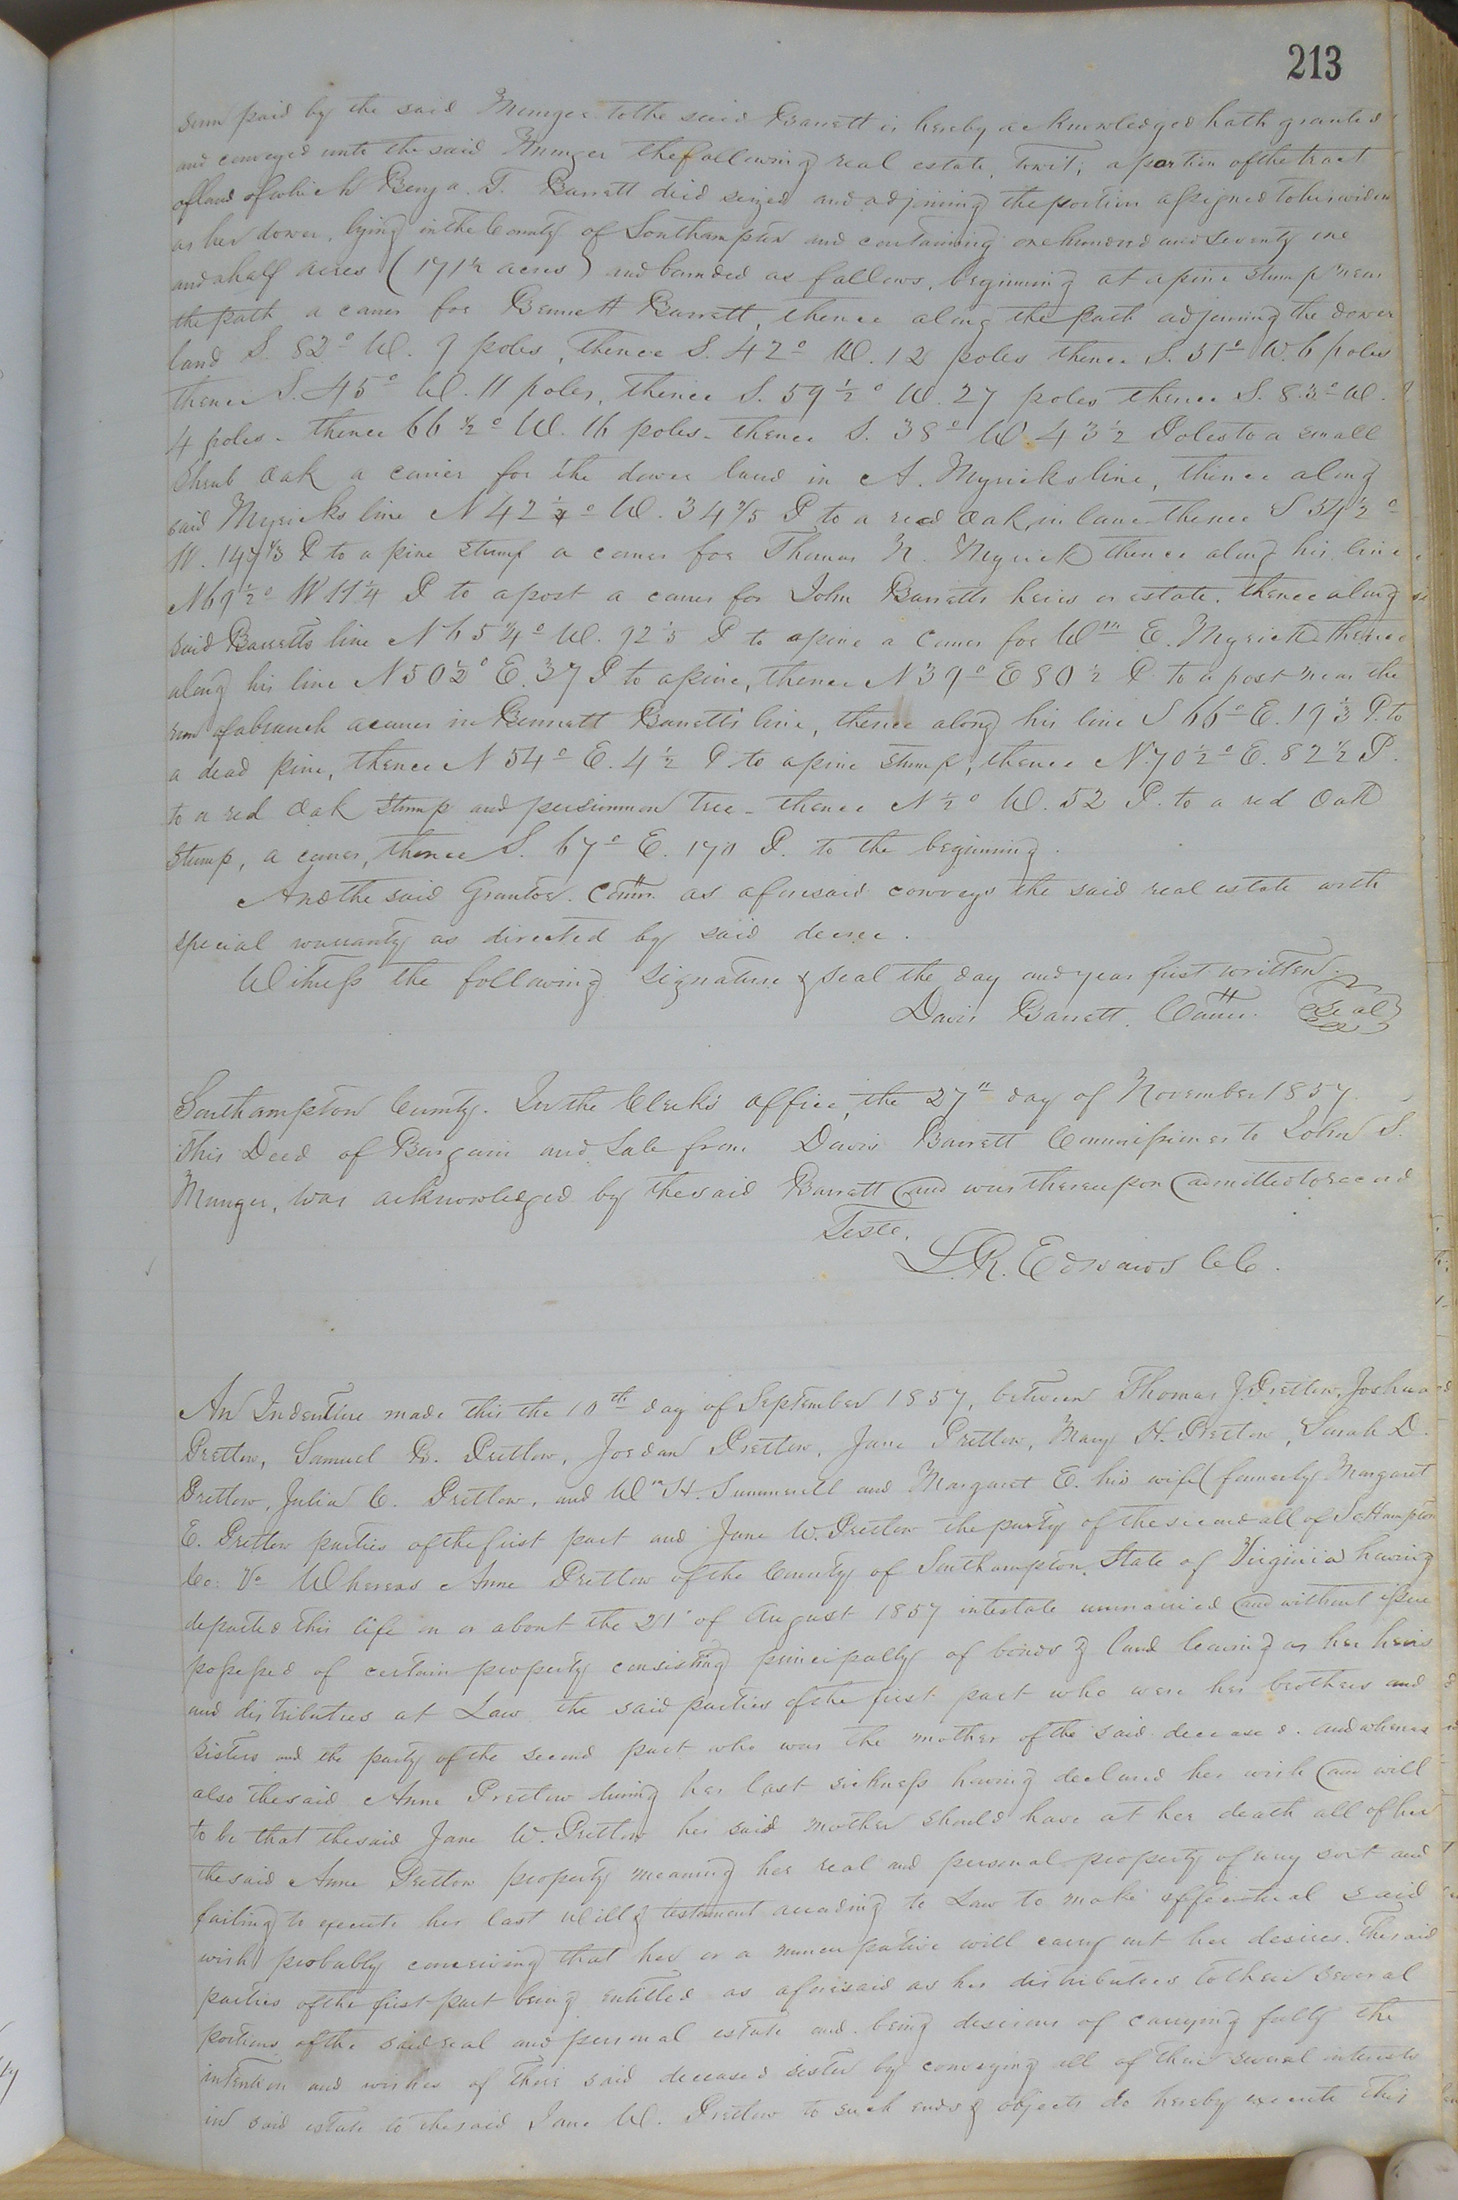 213
sum paid by the said Munger to the said Barrett is hereby acknowledged hath granted
and conveyed unto the said Munger the following real estate, towit; a portion of the tract
of land of which Benja. T. Barrett died seized and adjoining the portion assigned to his widow
as her dower, lying in the County of Southampton and containing one hundred and seventy one
and a half acres (171½ acres) and bounded as follows, beginning at a pine stump near
the path a corner for Bennett Barrett, thence along the path adjoining the dower
land S. 82° W. 9 poles, thence S. 42° W. 12 poles thence S. 31° W. 6 poles
thence S. 45° W. 11 poles, thence S. 59½° W. 27 poles thence S. 83° W.
4 poles - thence 66½° W. 16 poles - thence S. 38° W 43½ Poles to a small
Shrub Oak a corner for the dower land in A. Myricks line, thence along
said Myricks line N 42¼° W. 34⅖ P to a red Oak in lane thence S 54½°
W. 147⅓ P to a pine stump a corner for Thomas N. Myrick thence along his line
N69½° W 11¼ P to a post a corner for John Barretts heirs or estate. thence along
said Barretts line N 65¼° W. 92⅕ P to a pine a corner for Wm E. Myrick thence
along his line N 50½° E. 37 P to a pine, thence N 39° E 80½ P to a post near the
run of a branch a corner in Bennett Barrett's line, thence along his line S 66° E. 19⅓ P. to
a dead pine, thence N 54° E. 4½ P to a pine stump, thence N. 70½° E. 82½ P.
to a red Oak stump and persimmon tree - thence N ½° W. 52 P. to a red Oak
stump, a corner, thence S. 67° E. 170 P. to the beginning.
And the said Grantor. Comr. as aforesaid conveys the said real estate with
special warranty as directed by said decree.
Witness the following signature & seal the day and year first written.
Davis Barrett. Comr. Seal
Southampton County. In the Clerk's office, the 27" day of November 1857.
This Deed of Bargain and Sale from Davis Barrett Commissioner to John S.
Munger, was acknowledged by the said Barrett and was thereupon admitted to record
Teste,
L. R. Edwards CC.
An Indenture made this the 10th day of September 1857, between Thomas J. Pretlow, Joshua
Pretlow, Samuel B. Pretlow, Jordan Pretlow, Jane Pretlow, Mary H. Pretlow, Sarah D.
Pretlow, Julia C. Pretlow, and Wm H. Summerell and Margaret E. his wife (formerly Margaret
E. Pretlow parties of the first part and Jane W. Pretlow the party of the second all of SoHampton
Co: Va Whereas Anne Pretlow of the County of Southampton State of Virginia having
departed this life on or about the 21' of August 1857 intestate unmarried and without issue
possessed of certain property consisting principally of bonds & land leaving as her heirs
and distributees at Law the said parties of the first part who were her brothers and
sisters and the party of the second part who was the mother of the said deceased. and whereas
also the said Anne Pretlow during her last sickness having declared her wish and will
to be that the said Jane W. Pretlow her said mother should have at her death all of her
the said Anne Pretlow property meaning her real and personal property of every sort and
failing to execute her last Will & testament according to Law to make effectual said
wish probably conceiving that her or a nuncupative will carry out her desires. The said
parties of the first part being entitled as aforesaid as her distributees to their several
portions of the said real and personal estate and being desirous of carrying fully the
intention and wishes of their said deceased sister by conveying all of their several interests
in said estate to the said Jane W. Pretlow to such ends & objects do hereby execute this